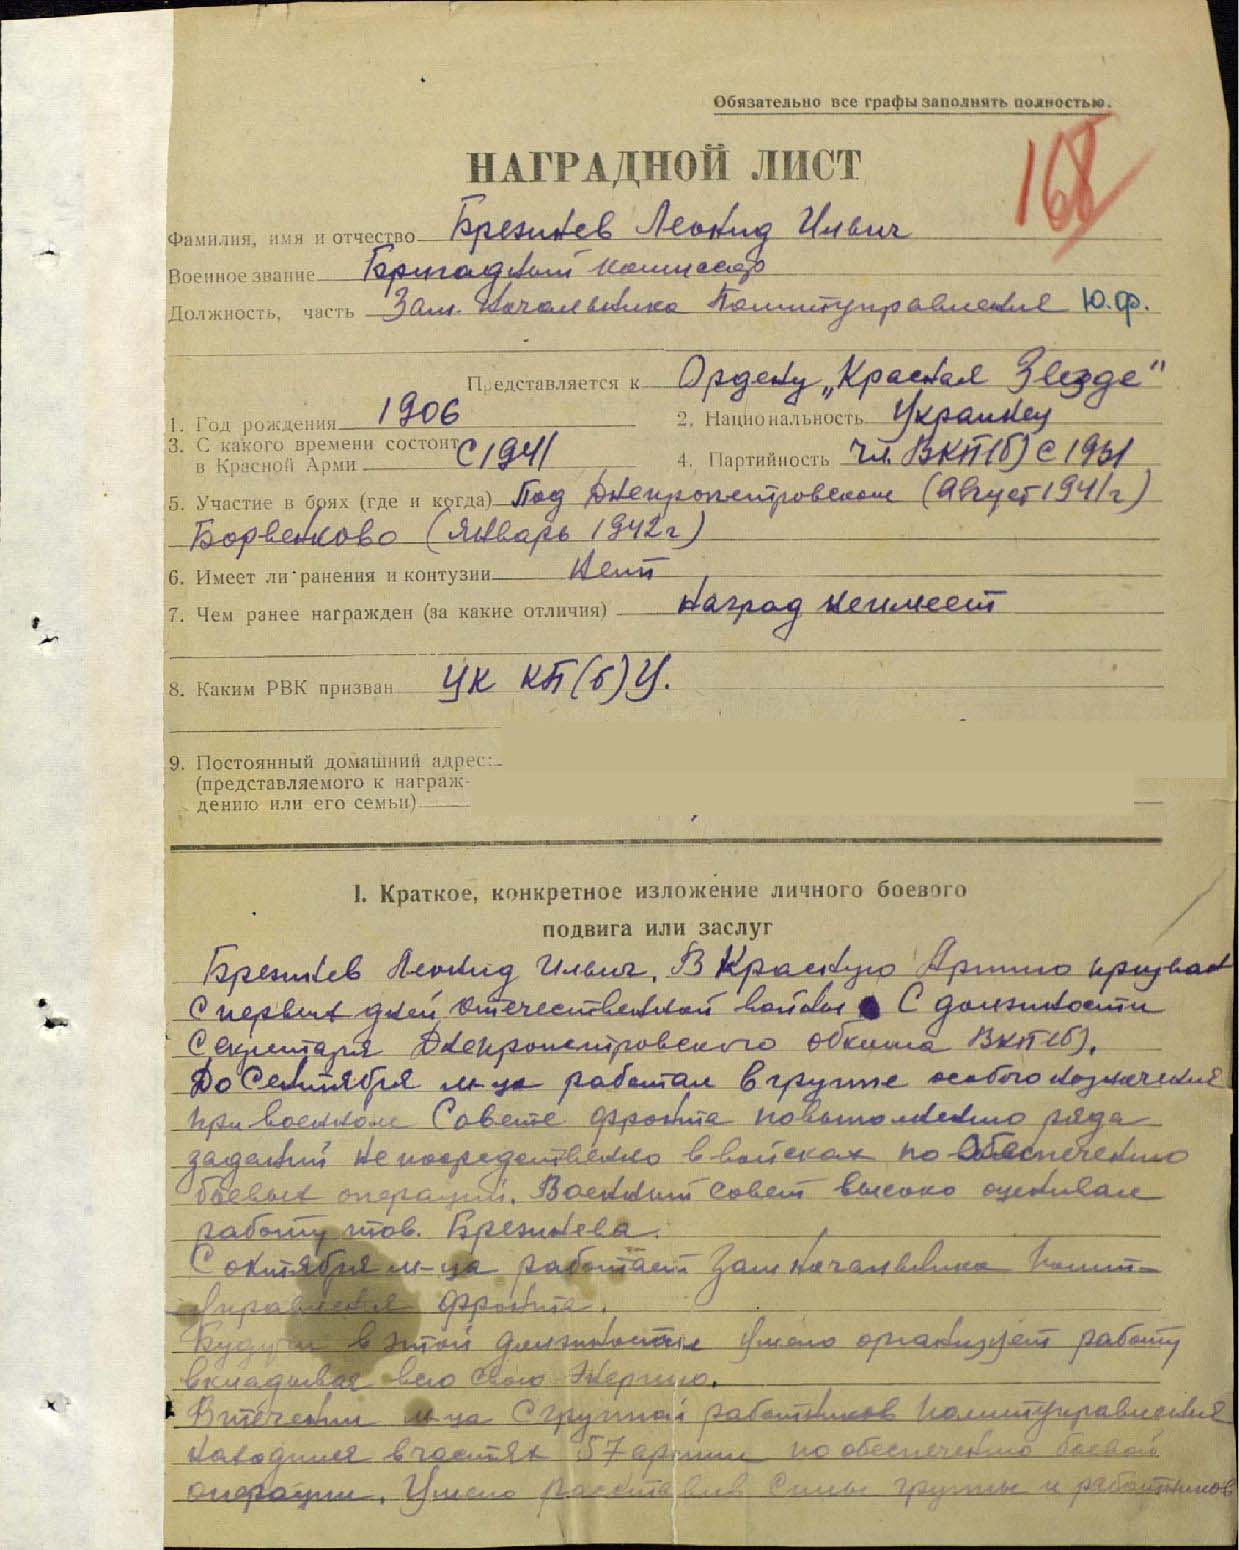 Обязательно все графы заполнять полностью.
168
НАГРАДНОЙ ЛИСТ
Фамилия, имя и отчество Брежнев Леонид Ильич
Военное звание Бригадный комиссар
Должность, часть Зам. Начальника Политуправления Ю.Ф.
Представляется к Ордену „Красная Звезде"
1. Год рождения 1906 2. Национальность Украинец
3. С какого времени состоит
в Красной Арми с 1941 4. Партийность чл. ВКП(б) с 1931
5. Участие в брях (где и когда) Под Днепропетровском (Август 1941г)
Борвенково (январь 1942г)
6. Имеет ли ранения и контузии Нет
7. Чем ранее награжден (за какие отличия) Наград неимеет
8. Каким РВК призван ЦК КП(б)У.
9. Постоянный домашний адрес:
(представляемого к награж-
дению или его семьи)
I. Краткое, конкретное изложение личного боевого
подвига или заслуг
Брежнев Леонид Ильич, В Красную Армию призван
с первых дней отечественной войны С должности
Секретаря Днепропетровского обкома ВКП(б).
До Сентября м-ца работал в группе особого назначения
при военном Совете фронта по выполнению ряда
заданий непосредственно в войсках по обеспечению
боевых операций. Военный совет высоко оценивал
работу тов. Брежнева.
С октября м-ца работает Зам начальника Полит-
управления фронта.
Будучи в этой должности умело организует работу
вкладывая всю свою энергию.
В течении м-ца с группой работников Политуправления
находился в частях 57 армии по обеспечению боевой
операции. Умело расставив силы группы и работников